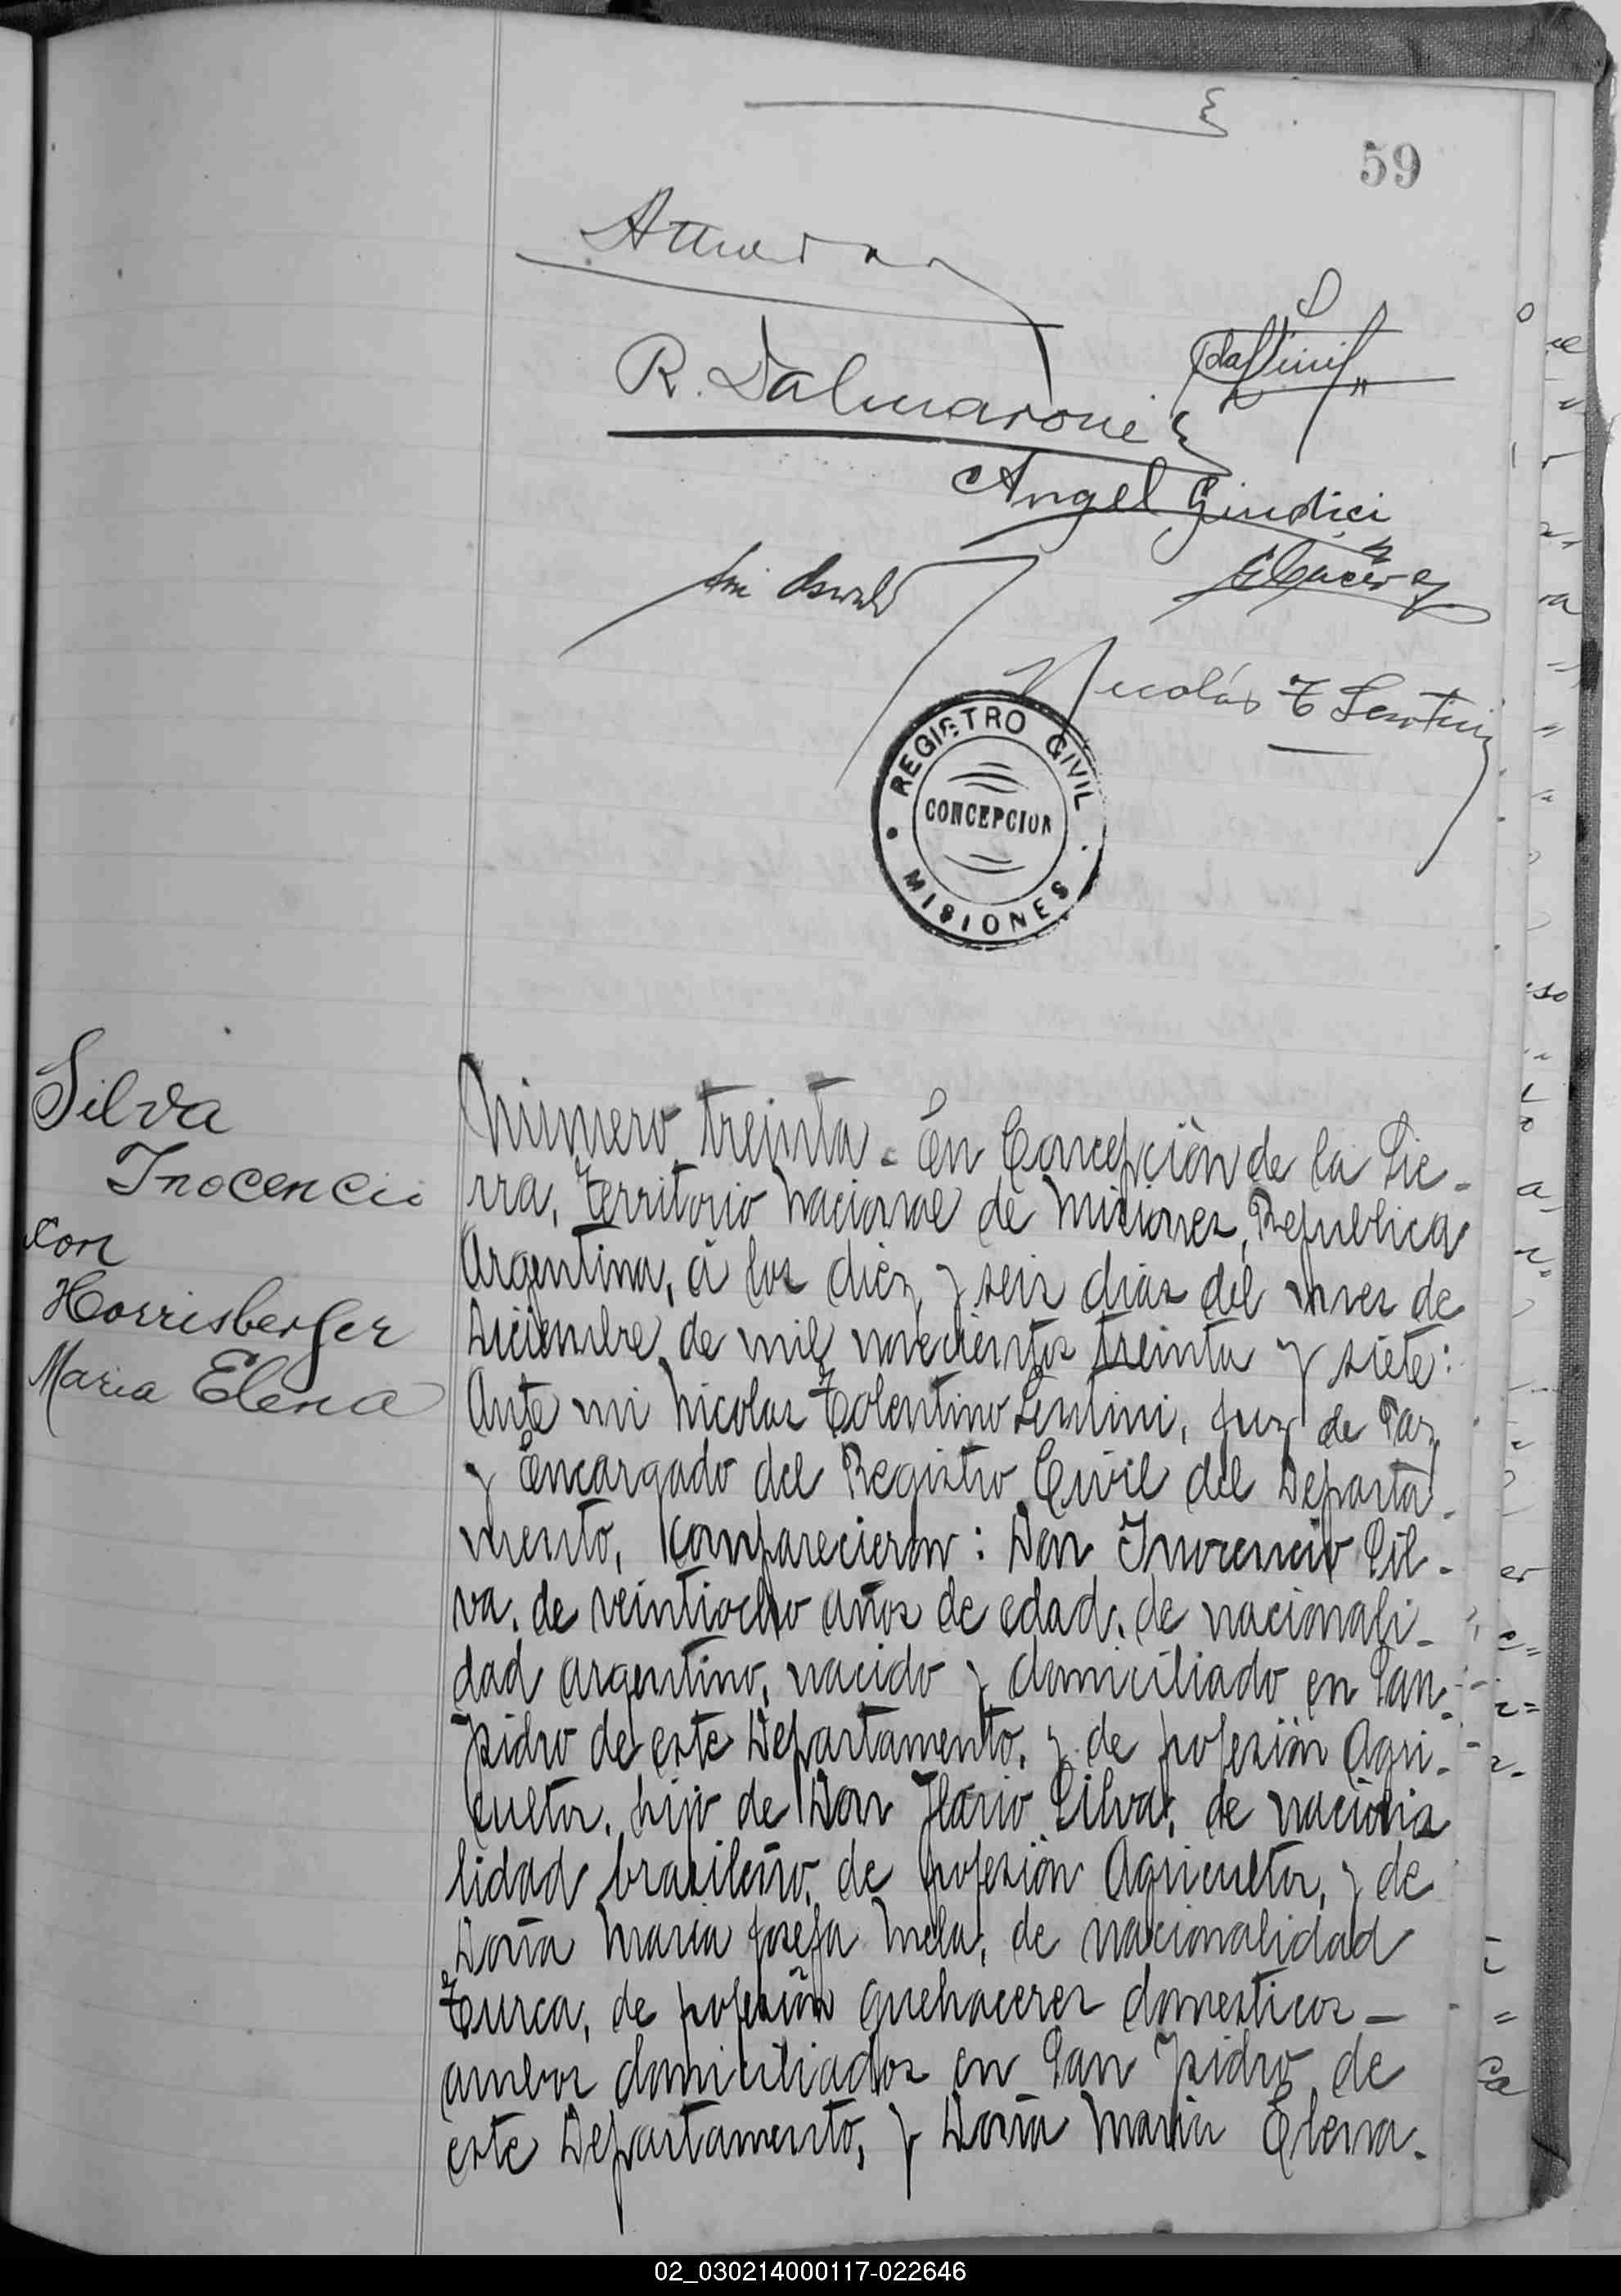 59
R. Dalmaroni
Angel Giudici
Nicolás T Sentini
REGISTRO CIVIL
CONCEPCION
MISIONES
Silva
Inocencio
con
Horrisberger
Maria Elena
Número treinta. En Concepción de la Sie-
rra, Territorio Nacional de Misiones, República
Argentina, á los diez y seis dias del mes de
Diciembre de mil novecientos treinta y siete:
Ante mi Nicolas Tolentino Sentini, Juez de Paz
y Encargado del Registro Civil del Departa-
mento, comparecieron: Don Inocencio Sil-
va, de veintiocho años de edad, de nacionali-
dad argentino, nacido y domiciliado en San-
Isidro de este Departamento, y de profesión Agri-
cultor, hijo de Don Ilario Silva, de naciona
lidad brasileño, de profesión Agricultor, y de
Doña Maria Josefa Mela, de nacionalidad
Turca, de profesión quehaceres domesticos-
ambos domiciliados en San Isidro de
este Departamento, y Doña Maria Elena-
02_030214000117-022646